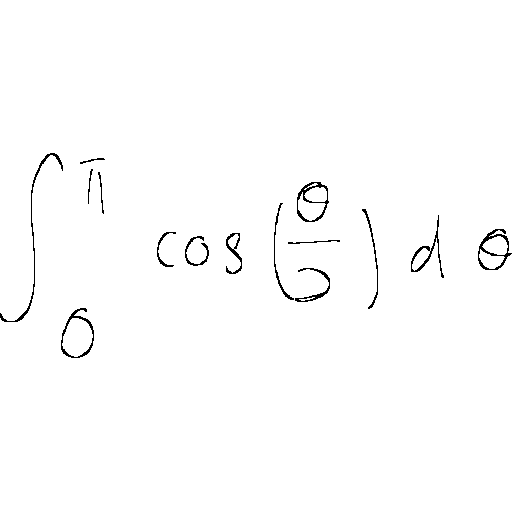 \int_{0}^{\pi} \cos\left(\frac{\theta}{5}\right) d\theta